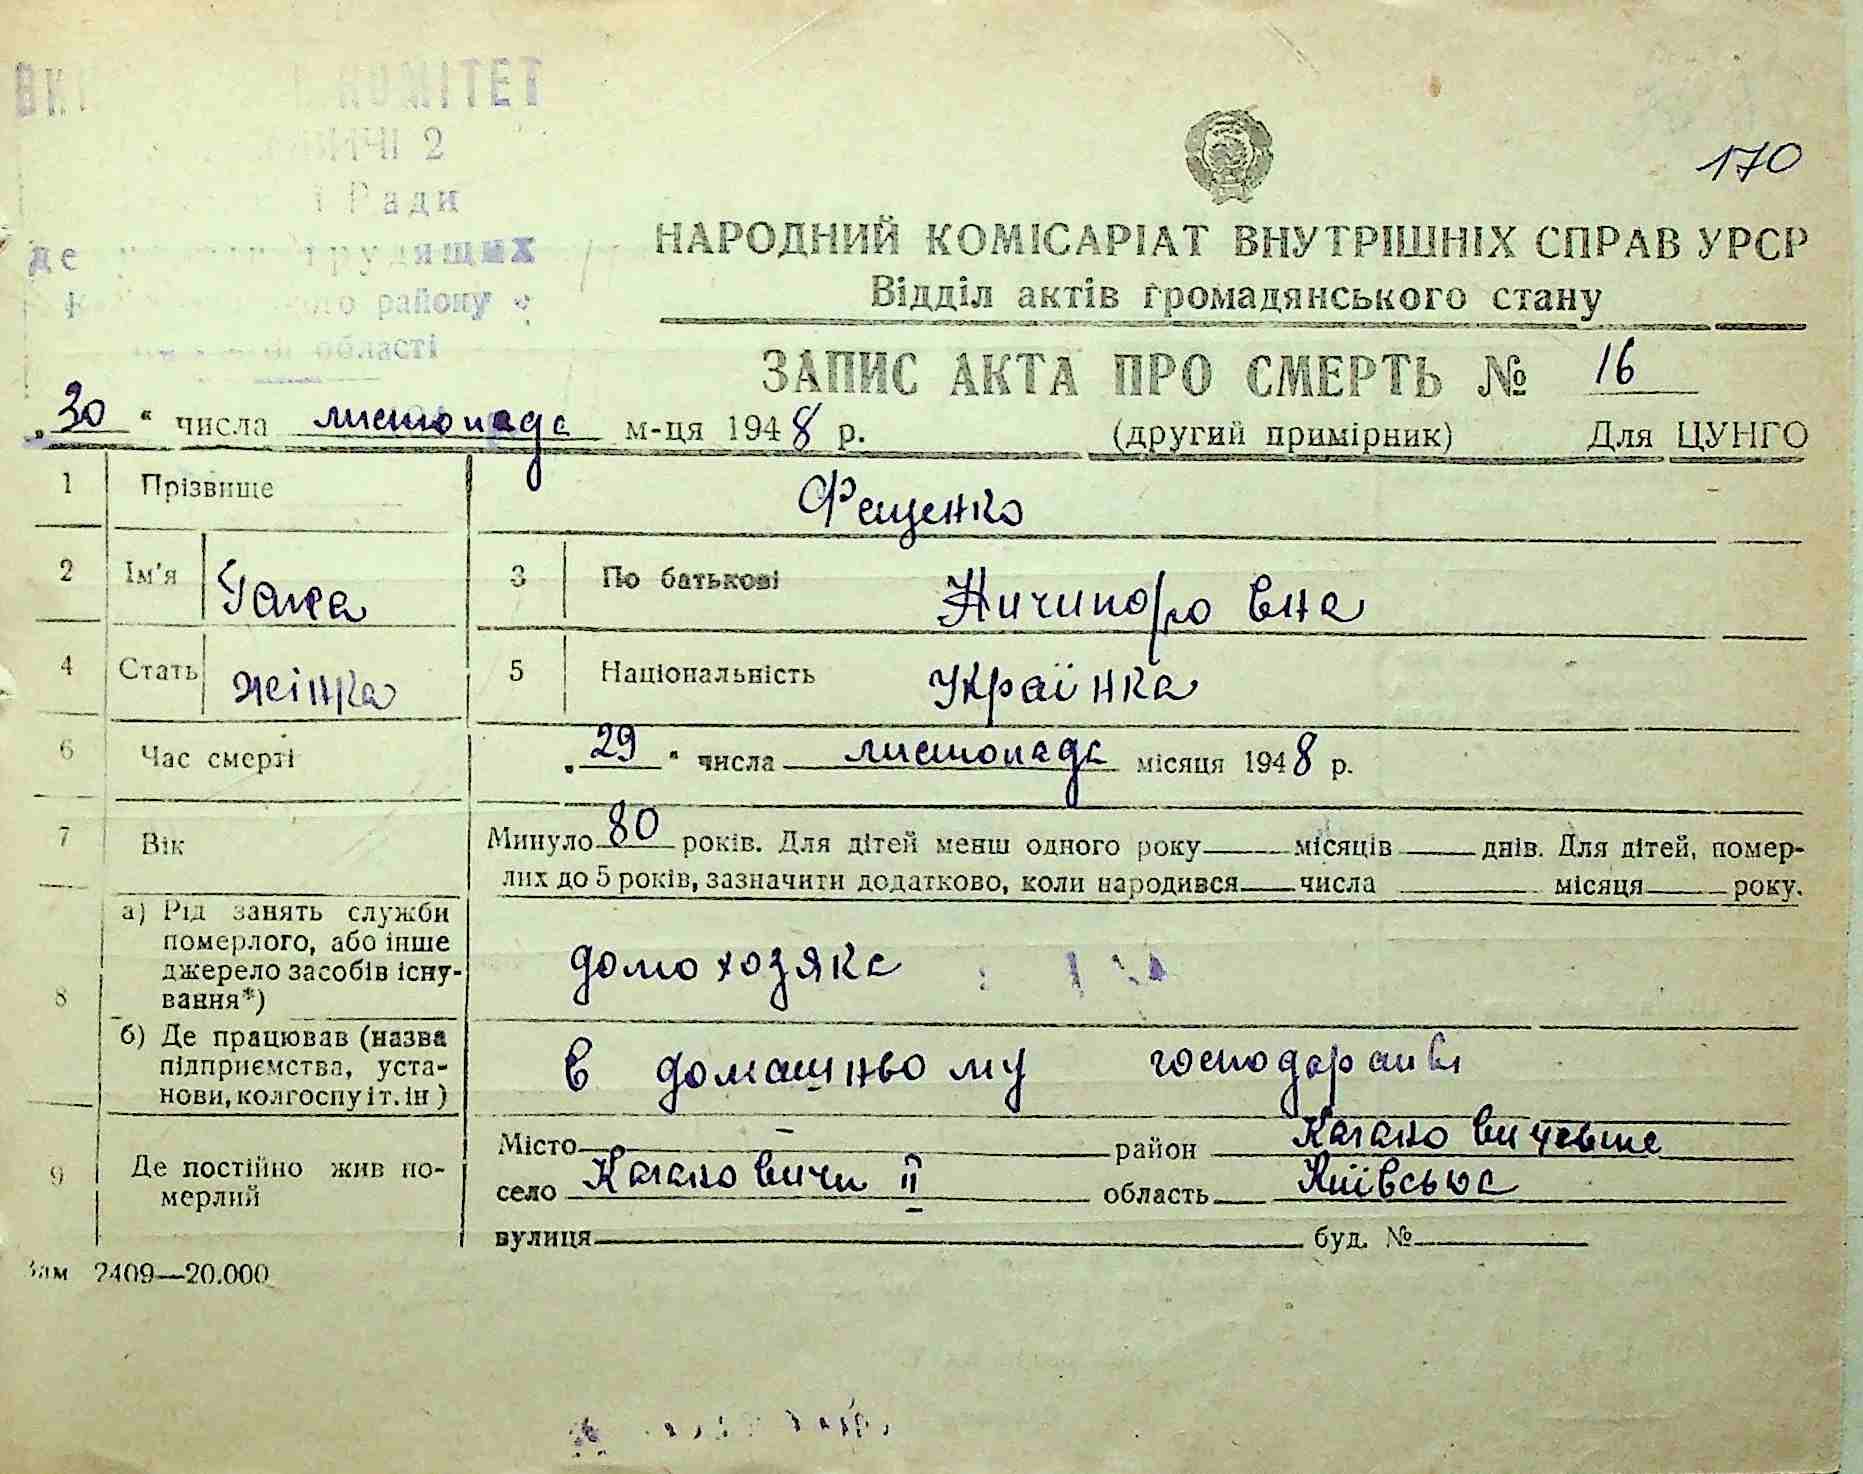 КОМІТЕТ
2
і Ради
трудящих
району
області
170
НАРОДНИЙ КОМІСАРІАТ ВНУТРІШНІХ СПРАВ УРСР
Відділ актів громадянського стану
ЗАПИС АКТА ПРО СМЕРТЬ № 16
„30“ числа листопада м-ця 1948 р. (другий примірник) Для ЦУНГО
1 Прізвище Фещенко
2 Ім'я Гапка 3 По батькові Ничипоровна
4 Стать жінка 5 Національність Українка
6 Час смерті „29“ числа листопада місяця 1948 р.
7 Вік Минуло 80 років. Для дітей менш одного року місяців днів. Для дітей, помер-
лих до 5 років, зазначити додатково, коли народився числа місяця року.
8 а) Рід занять служби
померлого, або інше
джерело засобів існу-
вання*) домохозяка
б) Де працював (назва
підприємства, уста-
нови, колгоспу і т. ін) в домашньому господарстві
9 Де постійно жив по-
мерлий
Місто — район Кагановичевше
село Кагановичи II область Київська
вулиця буд. №
Зам 2409—20.000